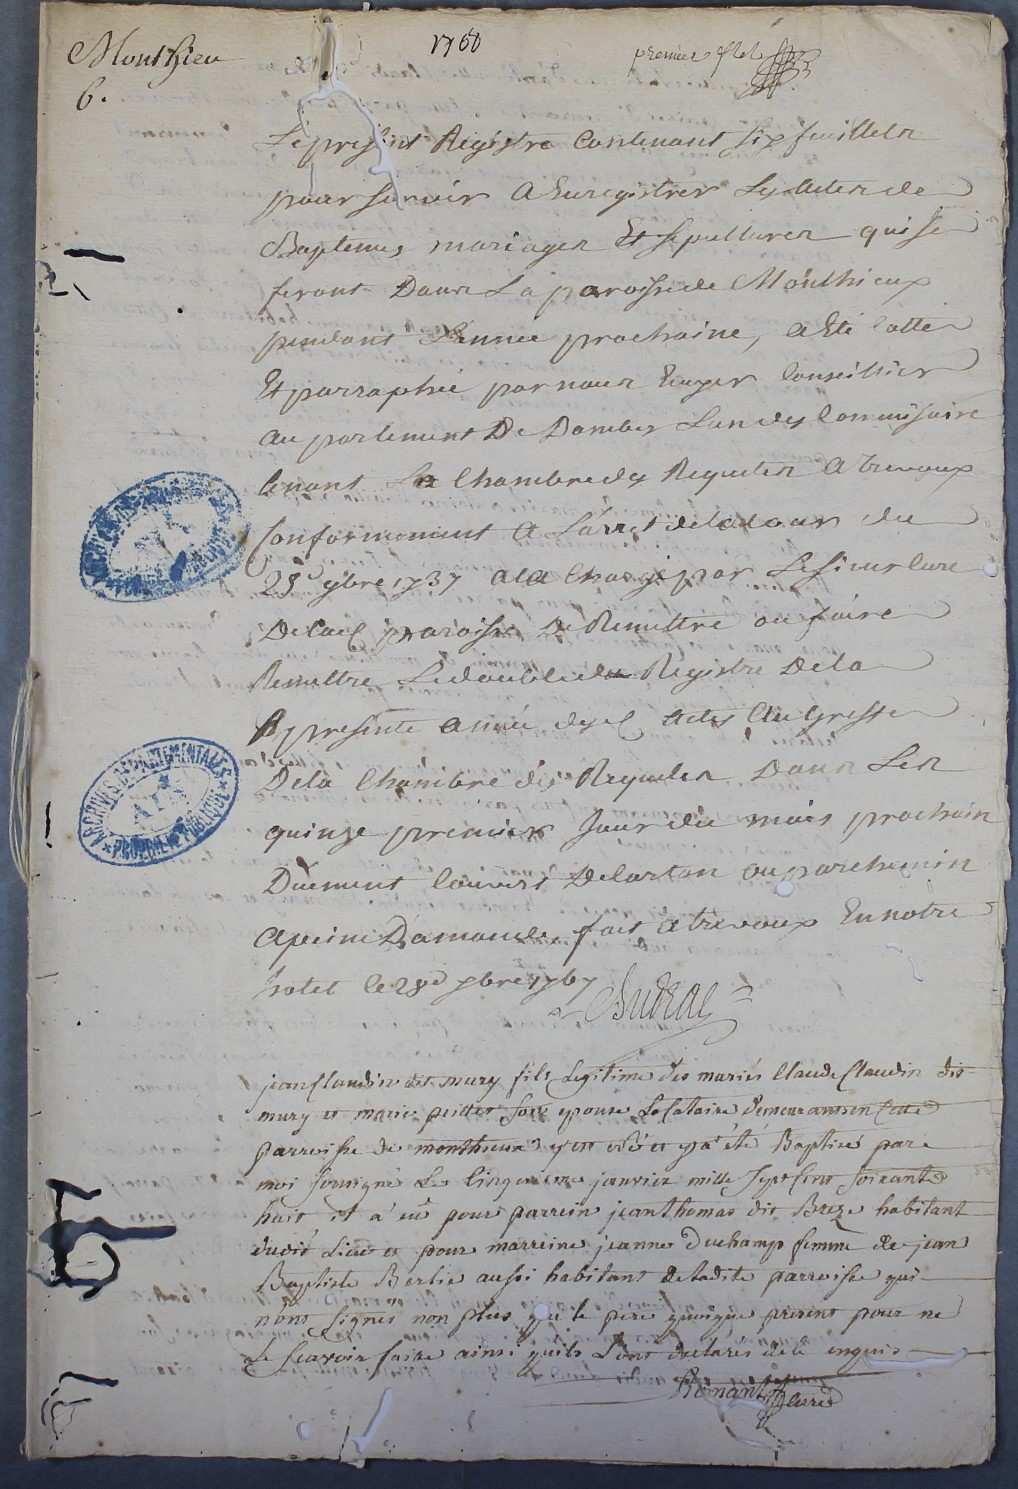 Monthieu
6.
1768
premier f
Le present Registre Contenant six feuillets
pour servir a Enregistrer Les Actes de
Baptemes mariages Et sepultures qui se
feront Dans La paroisse de Monthieux
pendant L'année prochaine, a Eté Cotté
Et parraphé par nous Ecuyer Conseillier
au parlement De Dombes L'un des Commissaire
tenant La Chambre des Requetes a trevoux
Conformement a L'arrest de la Cour du
29 9bre 1737 a la Charge par Le sieur Curé
De lad paroisse De Remettre ou faire
Remettre Le double du Registre De la
presente année desd Actes Au Greffe
De la Chambre des Requetes Dans Les
quinze premier Jour du mois prochain
Duement Couvert De Carton ou parchemin
a peine D'amande fait a trevoux En notre
hotel le 28e 9bre 1767
jean Claudin dit mury fils Legitime des mariés Claude Claudin dit
mury et marie son epouse Locataire demeurant en Cette
parroisse de monthieux y est né et y a été Baptisé par
moi sousigné Le Cinquieme janvier mille sept Cent soixante
huit et a eü pour parrein jean thomas dit Breze habitant
dudit Lieu et pour marreine jeanne Duchamp femme de jean
Baptiste Berlie aussi habitant de ladite parroisse qui
n'ont signés non plus que le pere quoique present pour ne
Le scavoir faire ainsi qu'ils L'ont declarés de ce enquis
Curé
ARCHIVES DEPARTEMENTALES
AIN
PROPRIETE PUBLIQUE